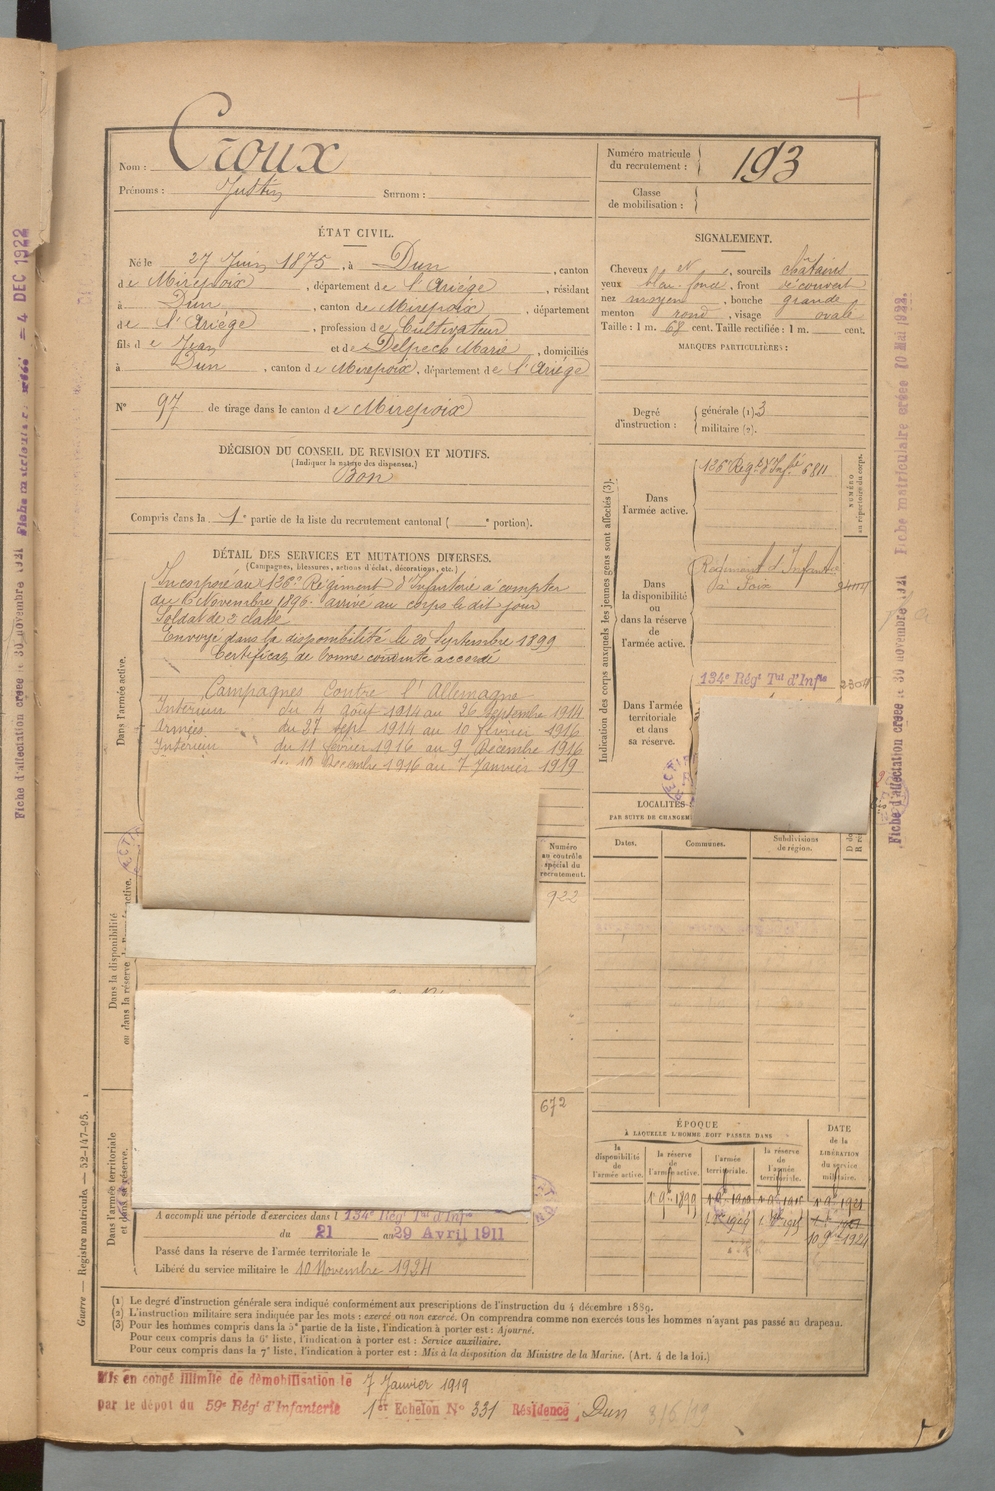 Nom : Croux
Prénoms : Justin Surnom :
ÉTAT CIVIL.
Né le 27 Juin 1875, à Dun, canton
de Mirepoix, département de l'Ariège, résidant
à Dun, canton de Mirepoix, département
de l'Ariège, profession de Cultivateur
fils de Jean et de Delpech Marie, domiciliés
à Dun, canton de Mirepoix, département de l'Ariège
N° 97 de tirage dans le canton de Mirepoix
DÉCISION DU CONSEIL DE REVISION ET MOTIFS.
(Indiquer la nature des dispenses.)
Bon
Compris dans la 1e partie de la liste du recrutement cantonal ( e portion).
DÉTAIL DES SERVICES ET MUTATIONS DIVERSES.
(Campagnes, blessures, actions d'éclat, décorations, etc.)
Dans l'armée active.
Incorporé au 126e Régiment d'Infanterie à compter
du 16 Novembre 1896. arrivé au corps le dit jour
Soldat de 2e classe
Envoyé dans la disponibilité le 20 Septembre 1899
Certificat de bonne conduite accordé
Campagnes Contre l'Allemagne
Intérieur du 4 août 1914 au 26 septembre 1914
Armées du 27 sept 1914 au 10 février 1916
Intérieur du 11 février 1916 au 9 Décembre 1916
du 10 Décembre 1916 au 7 Janvier 1919
Dans la disponibilité
ou dans la réserve de l'armée active.
Numéro
au contrôle
spécial du
recrutement.
922
672
Dans l'armée territoriale
et dans sa réserve.
A accompli une période d'exercices dans l 134e Régt Tal d'Infie
du 21 au 29 Avril 1911
Passé dans la réserve de l'armée territoriale le
Libéré du service militaire le 10 Novembre 1924
Numéro matricule
du recrutement : 193
Classe
de mobilisation :
SIGNALEMENT.
Cheveux et, sourcils châtains
yeux bleu foncé, front découvert
nez moyen, bouche grande
menton rond, visage ovale
Taille : 1 m. 68 cent. Taille rectifiée : 1 m. cent.
MARQUES PARTICULIÈRES :
Degré
d'instruction :
générale (1). 3
militaire (2).
Indication des corps auxquels les jeunes gens sont affectés (3).
NUMÉRO
au répertoire du corps.
Dans
l'armée active.
126e Régt d'Infie 6811
Dans
la disponibilité
ou
dans la réserve
de
l'armée active.
Régiment d'Infanterie
de Foix
Dans l'armée
territoriale
et dans
sa réserve.
134e Régt Tal d'Infie
LOCALITÉS
PAR SUITE DE CHANGEM
Dates. Communes. Subdivisions
de région.
ÉPOQUE
À LAQUELLE L'HOMME DOIT PASSER DANS
la
disponibilité
de
l'armée active.
la réserve
de
l'armée active.
l'armée
territoriale.
la réserve
de
l'armée
territoriale.
DATE
de la
LIBÉRATION
du service
militaire.
1 9re 1899
10 9re 1924
(1) Le degré d'instruction générale sera indiqué conformément aux prescriptions de l'instruction du 4 décembre 1889.
(2) L'instruction militaire sera indiquée par les mots : exercé ou non exercé. On comprendra comme non exercés tous les hommes n'ayant pas passé au drapeau.
(3) Pour les hommes compris dans la 5e partie de la liste, l'indication à porter est : Ajourné.
Pour ceux compris dans la 6e liste, l'indication à porter est : Service auxiliaire.
Pour ceux compris dans la 7e liste, l'indication à porter est : Mis à la disposition du Ministre de la Marine. (Art. 4 de la loi.)
Mis en congé illimité de démobilisation le 7 Janvier 1919
par le dépôt du 59e Régt d'Infanterie 1er Echelon N° 331 Résidence : Dun
Guerre — Registre matricule. — 52-147-95.
Fiche d'affectation créée le 30 novembre 1921 Fiche matriculaire créée 10 Mai 1922.
Fiche d'affectation créée le 30 novembre 1921 Fiche matriculaire créée - 4 DEC 1922